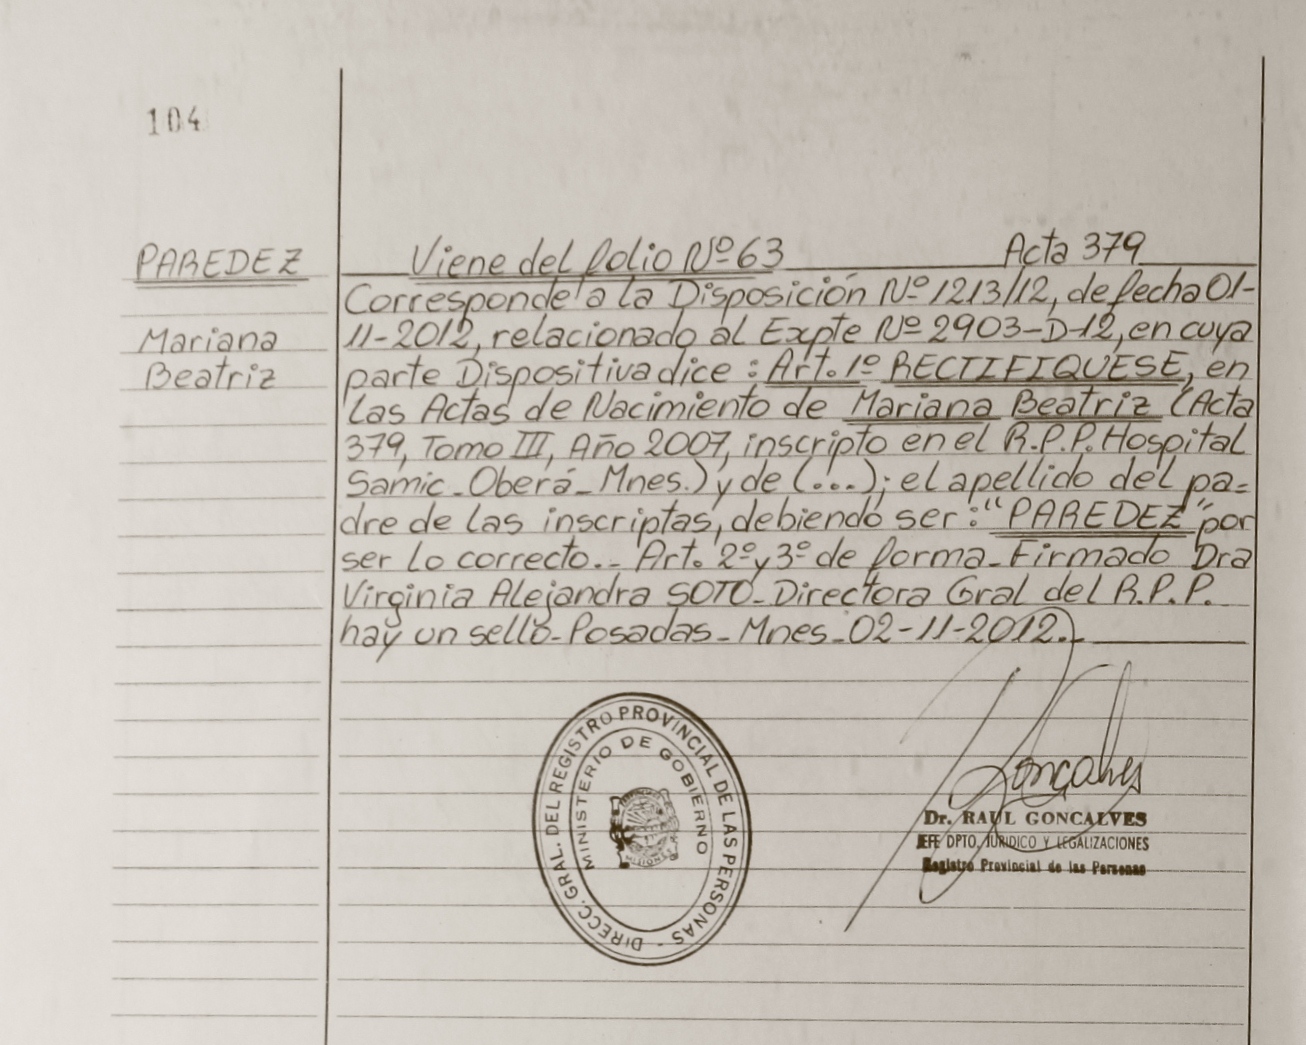 104
PAREDEZ
Mariana
Beatriz
Viene del folio Nº 63 Acta 379
Corresponde a la Disposición Nº 1213/12, de fecha 01-
11-2012, relacionado al Expte Nº 2903-D-12, en cuya
parte Dispositiva dice : Art. 1º RECTIFIQUESE, en
las Actas de Nacimiento de Mariana Beatriz (Acta
379, Tomo III, Año 2007, inscripto en el R.P.P. Hospital
Samic - Oberá - Mnes.) y de (...); el apellido del pa=
dre de las inscriptas, debiendo ser : "PAREDEZ" por
ser lo correcto.- Art. 2º y 3º de forma - Firmado Dra
Virginia Alejandra SOTO - Directora Gral del R.P.P.
hay un sello - Posadas - Mnes - 02-11-2012.
DIRECC. GRAL. DEL REGISTRO PROVINCIAL DE LAS PERSONAS -
MINISTERIO DE GOBIERNO
MISIONES
Goncalves
Dr. RAUL GONCALVES
JEFE DPTO. JURIDICO Y LEGALIZACIONES
Registro Provincial de las Personas